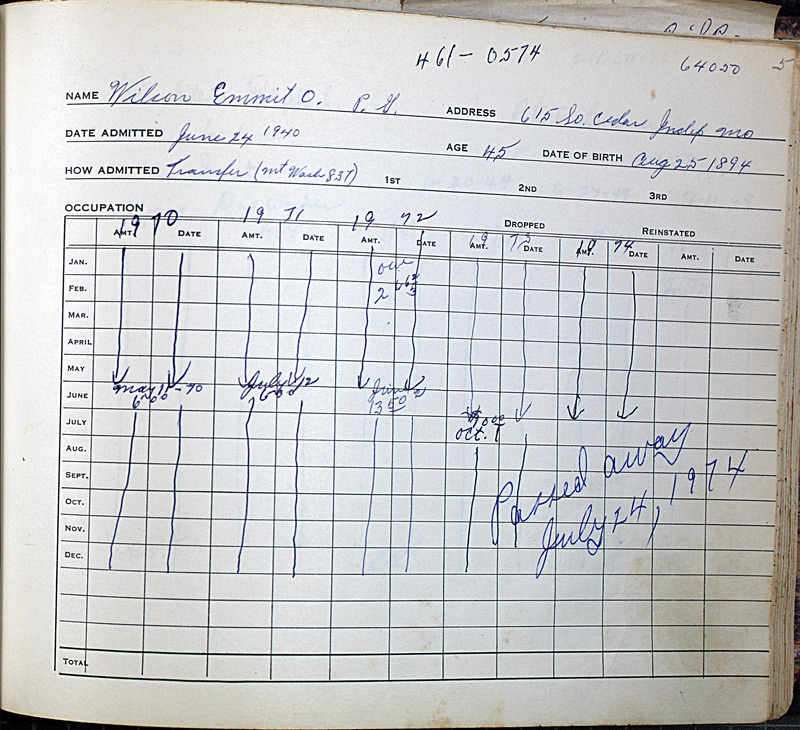 461-0574
64050 5
NAME Wilson Emmit O. P. G. ADDRESS 615 So. Cedar Indep Mo
DATE ADMITTED June 24 1940 AGE 45 DATE OF BIRTH Aug 25 1894
HOW ADMITTED Transfer (Mt Wash 837) 1ST 2ND 3RD
OCCUPATION
19 70 19 71 19 72 DROPPED REINSTATED
AMT. DATE AMT. DATE AMT. DATE 19 73 AMT. DATE 19 74 AMT. DATE AMT. DATE
JAN.
FEB. 2
MAR.
APRIL
MAY
JUNE May 11-70 July 12 June
6.00 6.00 13.50
JULY
Oct. 1
AUG. Passed away
SEPT. July 24, 1974
OCT.
NOV.
DEC.
TOTAL